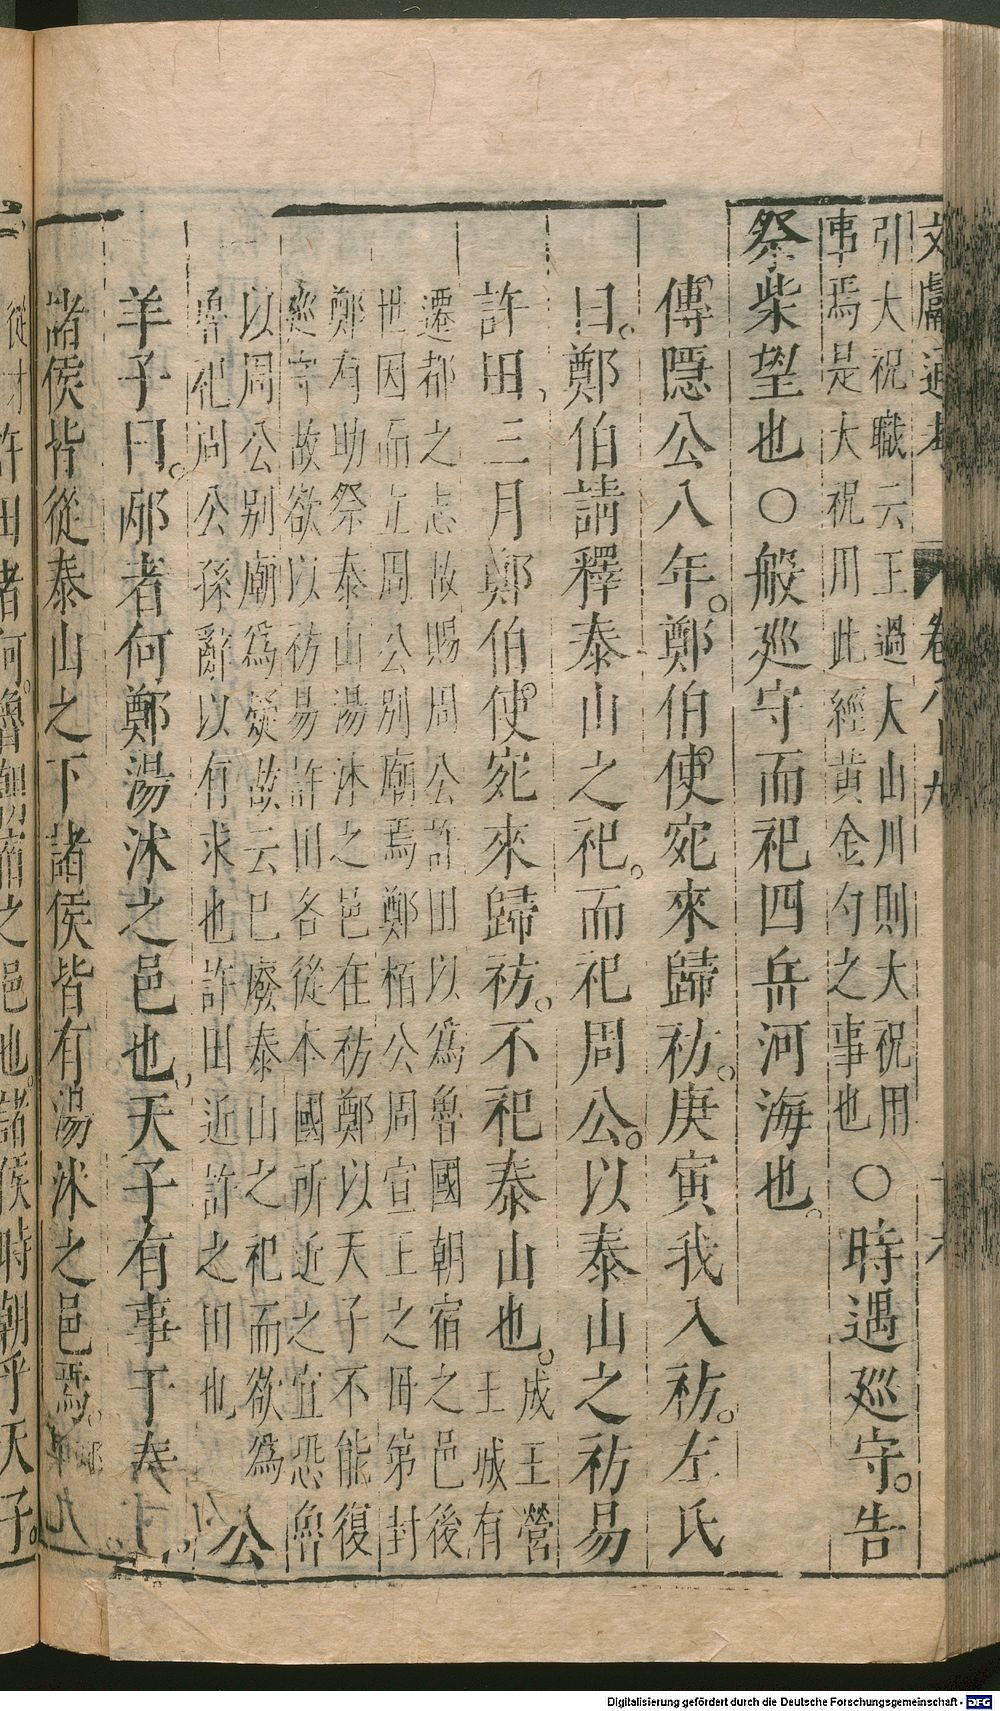 文獻通考　卷八十九
引大祝職云王過大山川則大祝用
事焉是大祝用此經黄金勺之事也　○時遇廵守。告
祭柴望也○般廵守而祀四岳河海也。
傳隠公八年。鄭伯使宛來歸祊。庚寅我入祊。左氏
曰。鄭伯請釋泰山之祀。而祀周公。以泰山之祊易
許田、三月鄭伯使宛來歸祊。不祀泰山也。
成王營
王城有
遷都之志故賜周公許田以為魯國朝宿之邑後
世因而立周公别廟焉鄭桓公周宣王之母弟封
鄭有助祭泰山湯沐之邑在祊鄭以天子不能復
廵守故欲以祊易許田各從本國所近之宜恐魯
以周公别廟為疑故云已廢泰山之祀而欲為
魯祀周公孫辭以有求也許田近許之田也
公
羊子曰。邴者何鄭湯沐之邑也。天子有事于泰山。
諸侯皆從泰山之下諸侯皆有湯沐之邑焉。
許田者何。魯朝宿之邑也。諸侯時朝乎天子。
Digitalisierung gefördert durch die Deutsche Forschungsgemeinschaft - DFG